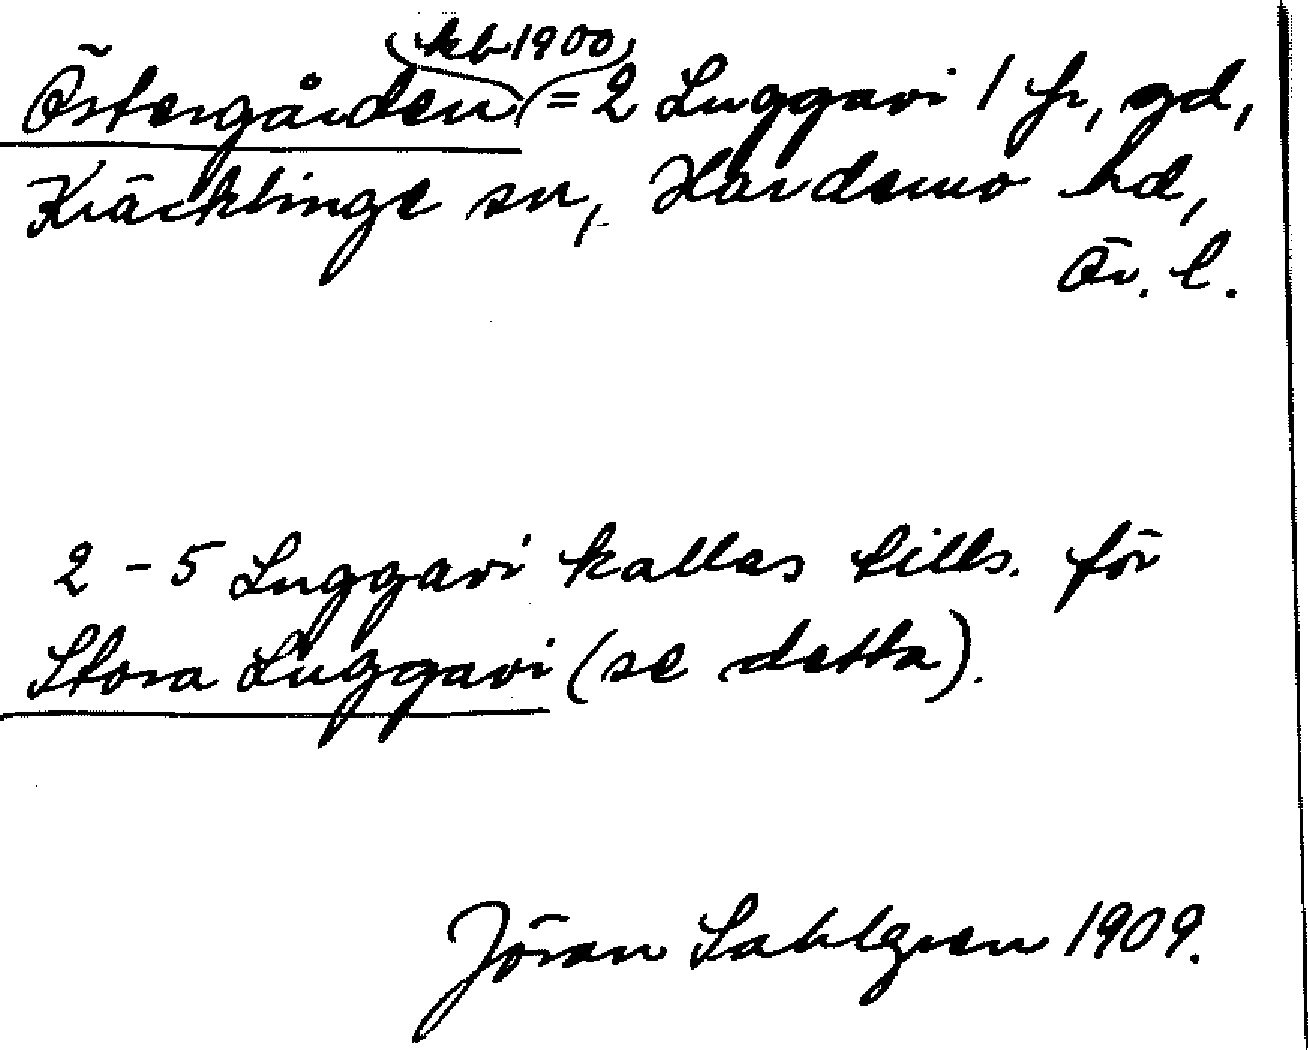 (kb 1900)
Östergården = 2 Luggavi 1 fr, gd,
Kräcklinge sn, Hardemo hd,
Ör. l.
2 - 5 Luggavi kallas tills. för
Stora Luggavi (se detta).
Jöran Sahlgren 1909.